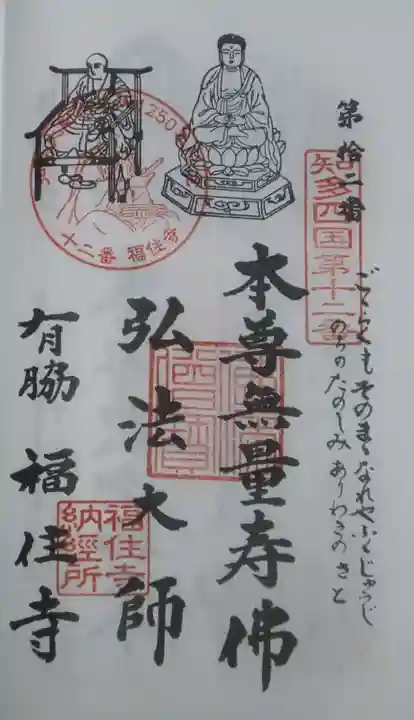 第拾二番
知多四国第十二番
ごくらくも そのまゝなれや ふくじゅうじ
のちのたのしみ ありわきのさと
本尊無量寿佛
弘法大師
有脇 福住寺
1250
十二番 福住寺
福住寺
納経所